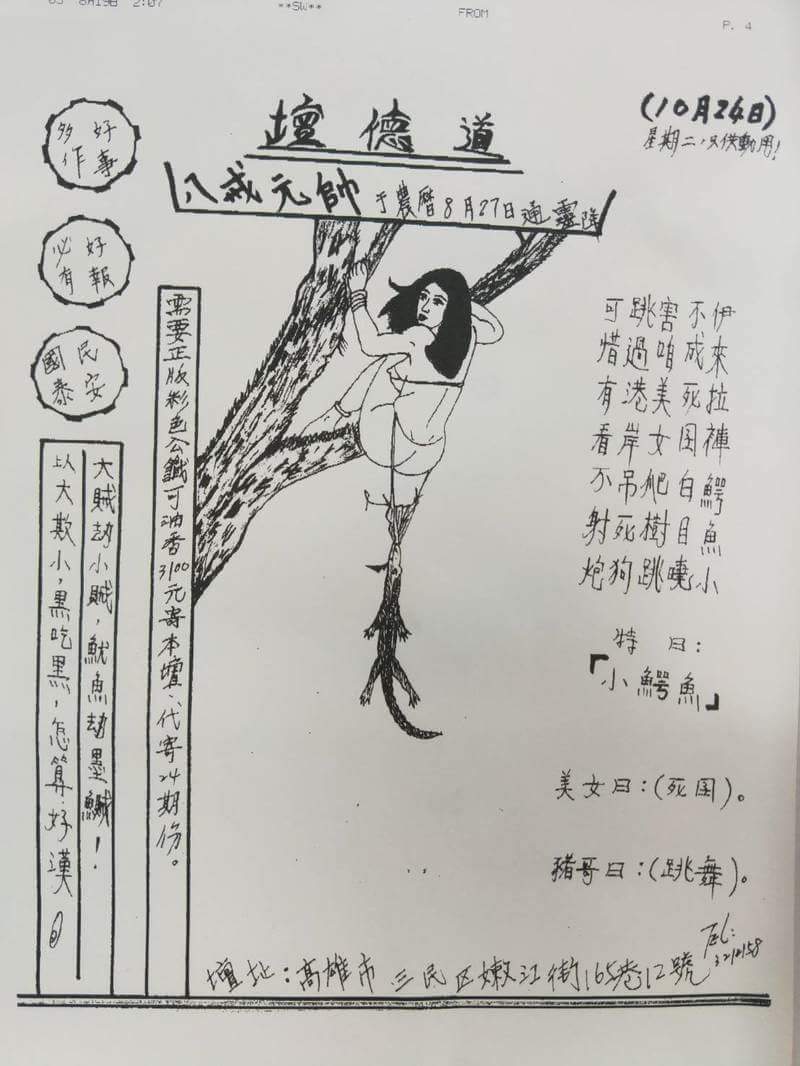 8月19日 2:07
**SW**
FROM
P. 4
道德壇
(10月24日)
星期二,只供動用!
八戒元帥 于農曆8月27日通靈降
好事
多作
好報
必有
民安
國泰
伊來拉褲鱷魚小
不成死囯白目嘵
害咱美女爬樹跳
跳過港岸吊死狗
可惜有看不射炮
特曰:
「小鱷魚」
美女曰:(死囯)。
豬哥曰:(跳舞)。
需要正版彩色公鐵可油香3100元寄本壇、代寄24期份。
大賊劫小賊,魷魚劫墨鰂!
以大欺小,黑吃黑,怎算好漢
壇址:高雄市三民区嫩江街165巷12號